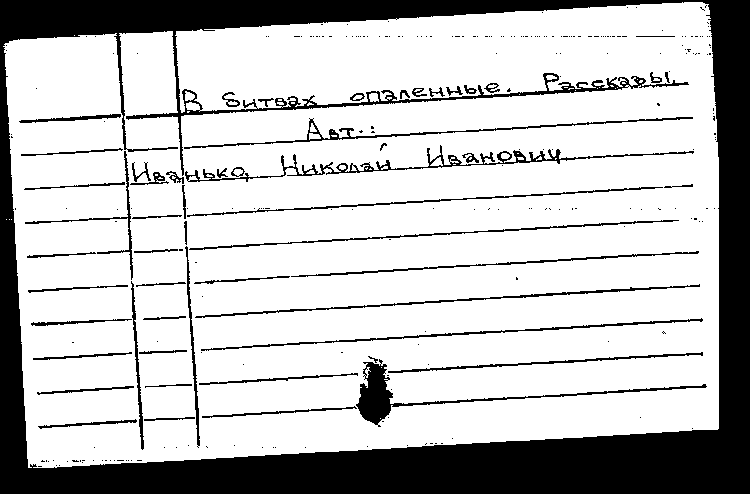 В битвах опаленные. Рассказы.
Авт.:
Иванько, Николай Иванович